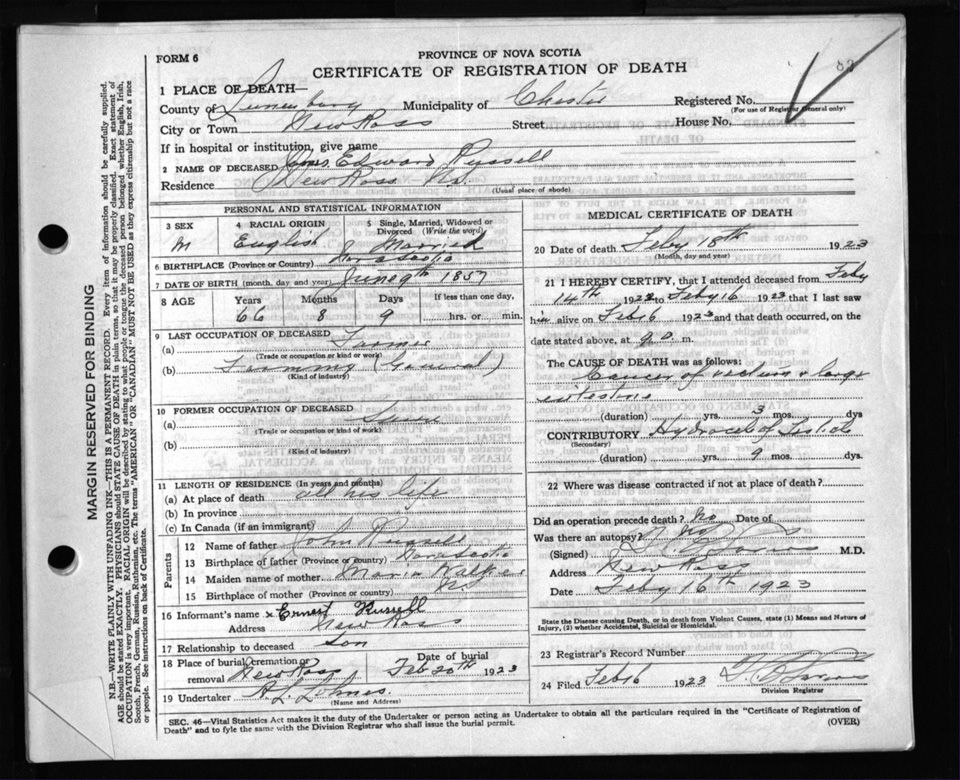 FORM 6
PROVINCE OF NOVA SCOTIA
CERTIFICATE OF REGISTRATION OF DEATH
83
1 PLACE OF DEATH—
County of Lunenburg Municipality of Chester Registered No.
(For use of Registrar General only)
City or Town New Ross Street House No.
If in hospital or institution, give name
2 NAME OF DECEASED James Edward Russell
Residence New Ross N.S.
(Usual place of abode)
PERSONAL AND STATISTICAL INFORMATION
3 SEX 4 RACIAL ORIGIN 5 Single, Married, Widowed or Divorced (Write the word)
M English Married
6 BIRTHPLACE (Province or Country) Nova Scotia
7 DATE OF BIRTH (month, day and year) June 9th 1857
8 AGE Years Months Days If less than one day,
66 8 9 hrs. or min.
9 LAST OCCUPATION OF DECEASED
(a) Farmer
(Trade or occupation or kind of work)
(b) Farming (General)
(Kind of industry)
10 FORMER OCCUPATION OF DECEASED
(a)
(Trade or occupation or kind of work)
(b)
(Kind of industry)
11 LENGTH OF RESIDENCE (In years and months)
(a) At place of death all his life
(b) In province
(c) In Canada (if an immigrant)
Parents
12 Name of father John Russell
13 Birthplace of father (Province or country) Nova Scotia
14 Maiden name of mother Maria Walker
15 Birthplace of mother (Province or country)
16 Informant's name x Ernest Russell
Address New Ross
17 Relationship to deceased Son
18 Place of burial, cremation or removal New Ross Date of burial Feb 20th 1923
19 Undertaker A. L. Lohnes.
(Name and Address)
MEDICAL CERTIFICATE OF DEATH
20 Date of death Feby 18th 1923
(Month, day and year)
21 I HEREBY CERTIFY, that I attended deceased from Feby
14th 1923 to Feby 16 1923 and that I last saw
him alive on Feb 16 1923 and that death occurred, on the
date stated above, at 9 a. m.
The CAUSE OF DEATH was as follows:
Cancer of rectum & large
intestine
(duration) yrs. 3 mos. dys
CONTRIBUTORY Hydrocele of Testicle
(Secondary)
(duration) yrs. 9 mos. dys.
22 Where was disease contracted if not at place of death?
Did an operation precede death? No Date of
Was there an autopsy? No
(Signed) M.D.
Address New Ross
Date Feby 16th 1923
State the Disease causing Death, or in death from Violent Causes, state (1) Means and Nature of Injury, (2) whether Accidental, Suicidal or Homicidal.
23 Registrar's Record Number
24 Filed Feb 16 1923
Division Registrar
SEC. 46—Vital Statistics Act makes it the duty of the Undertaker or person acting as Undertaker to obtain all the particulars required in the "Certificate of Registration of
Death" and to fyle the same with the Division Registrar who shall issue the burial permit. (OVER)
MARGIN RESERVED FOR BINDING
N.B.—WRITE PLAINLY WITH UNFADING INK—THIS IS A PERMANENT RECORD. Every item of information should be carefully supplied.
AGE should be stated EXACTLY. PHYSICIANS should STATE CAUSE OF DEATH in plain terms, so that it may be properly classified. Exact statement of
OCCUPATION is very important. RACIAL ORIGIN will be described by stating to what people or tongue the deceased person belonged whether English, Irish,
Scotch, French, German, Russian, Ruthenian, etc. The terms "AMERICAN" OR "CANADIAN" MUST NOT BE USED as they express citizenship but not a race
or people. See instructions on back of Certificate.